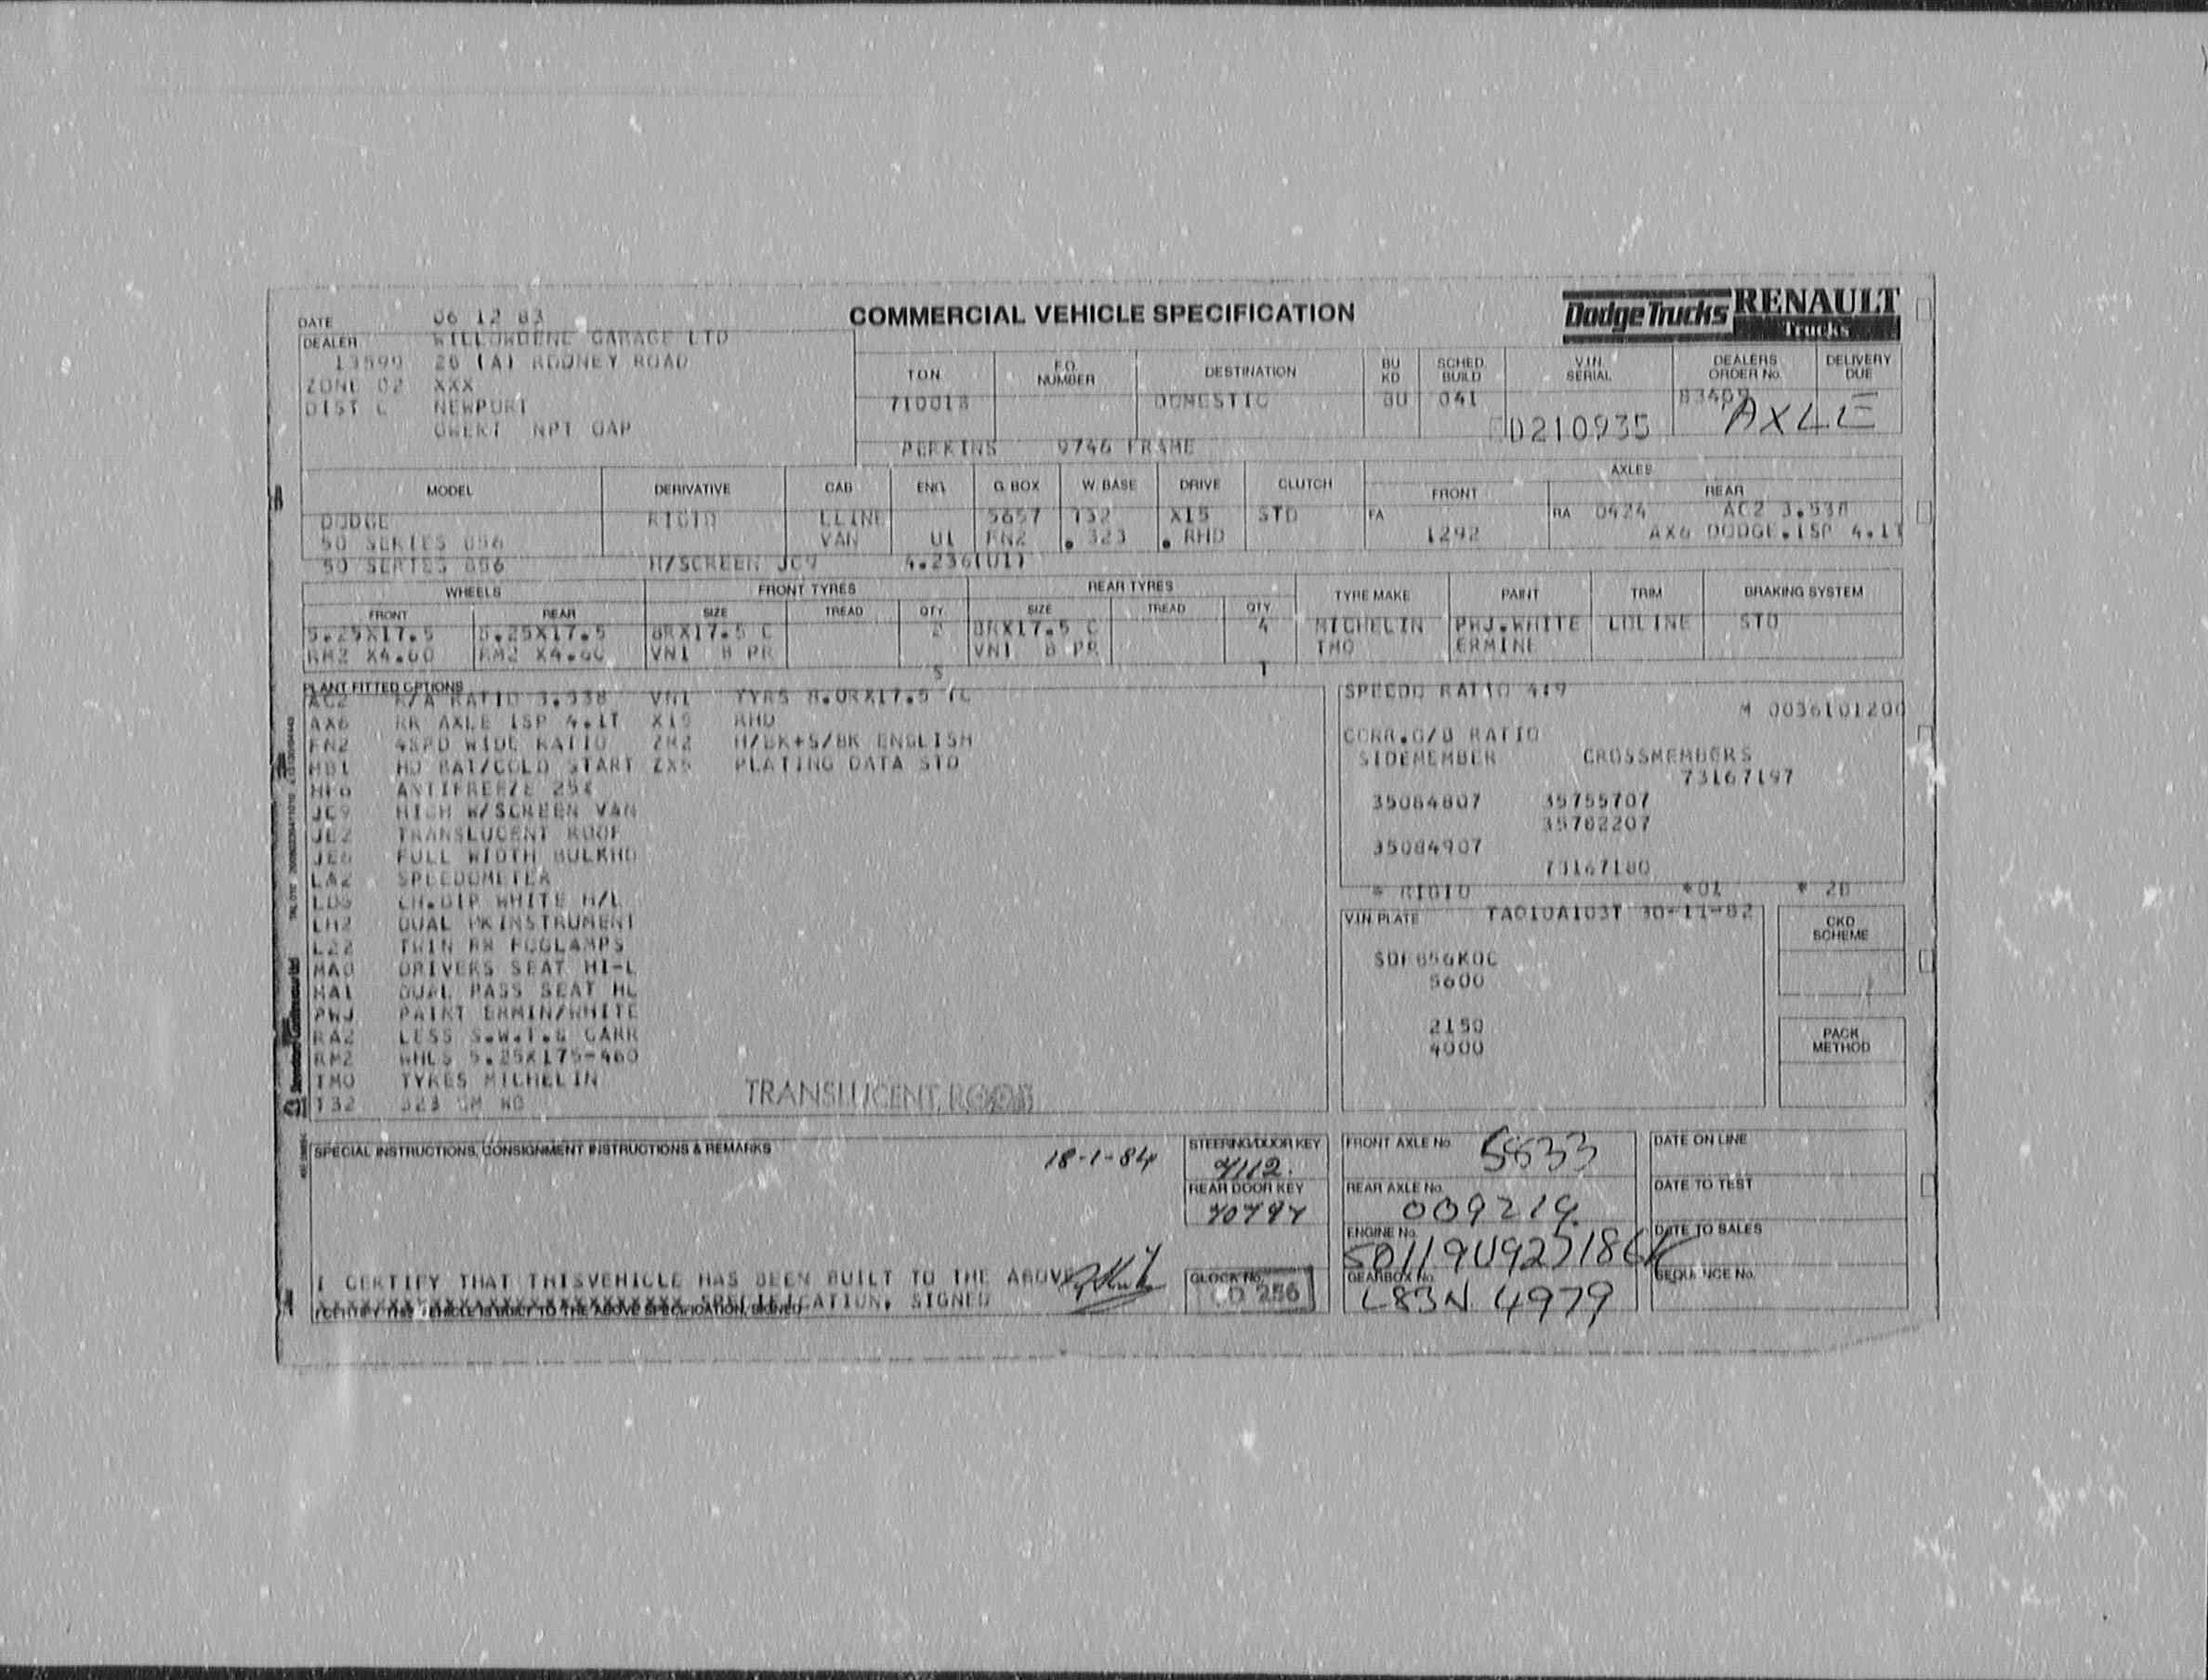 COMMERCIAL VEHICLE SPECIFICATION
Dodge Trucks RENAULT
TRUCKS
DATE 06 12 83
DEALER GARAGE LTD
13599 26 (A) RODNEY ROAD
ZONE 02 XXX
DIST C NEWPORT
GWENT NPT OAP
TON F.O. NUMBER DESTINATION BU KD SCHED. BUILD V.I.N. SERIAL DEALERS ORDER No. DELIVERY DUE
710018 DOMESTIC BU 041 D210935 AXLE
PERKINS 9746 FRAME
MODEL DERIVATIVE CAB ENG. G. BOX W. BASE DRIVE CLUTCH AXLES
FRONT REAR
DODGE RIGID LLINE 5657 T32 X15 STD FA RA 0424 AC2 3.538
50 SERIES 056 VAN U1 FN2 . 323 . RHD 1292 AX6 DODGE.1SP 4.1T
50 SERIES 056 H/SCREEN JC9 4.236(U1)
WHEELS FRONT TYRES REAR TYRES TYRE MAKE PAINT TRIM BRAKING SYSTEM
FRONT REAR SIZE TREAD QTY SIZE TREAD QTY
5.25X17.5 5.25X17.5 8RX17.5 C 2 8RX17.5 C 4 MICHELIN PWJ.WHITE LDLINE STD
RM2 X4.60 RM2 X4.60 VN1 8 PR VN1 8 PR TMO ERMINE
S T
PLANT FITTED OPTIONS
AC2 R/A RATIO 3.538 VN1 TYRS 8.0RX17.5 TC
AX6 RR AXLE 1SP 4.1T X15 RHD
FN2 4SPD WIDE RATIO ZM2 H/BK+S/BK ENGLISH
HB1 HD BAT/COLD START ZX5 PLATING DATA STD
HF6 ANTIFREEZE 25%
JC9 HIGH W/SCREEN VAN
JE2 TRANSLUCENT ROOF
JE6 FULL WIDTH BULKHD
LA2 SPEEDOMETER
LD5 CH.DIP WHITE H/L
LH2 DUAL PK INSTRUMENT
LZ2 TWIN RR FOGLAMPS
MA0 DRIVERS SEAT HI-L
MA1 DUAL PASS SEAT HL
PWJ PAINT ERMIN/WHITE
RA2 LESS S.W.I.& CARR
RM2 WHLS 5.25X175-460
TMO TYRES MICHELIN
T32 323 CM WB
TRANSLUCENT ROOF
SPEEDO RATIO 419
M 0036101200
CORR.G/B RATIO
SIDEMEMBER CROSSMEMBERS
73167197
35084807 35755707
35762207
35084907
73167180
* RIGID *01 * 20
VIN PLATE TA010A103T 30-11-82
5600
2150
4000
CKD SCHEME
PACK METHOD
SPECIAL INSTRUCTIONS, CONSIGNMENT INSTRUCTIONS & REMARKS
18-1-84
STEERING/DOOR KEY
REAR DOOR KEY
CLOCK No.
D 256
FRONT AXLE No. 5833
REAR AXLE No. 009219
ENGINE No.
GEARBOX No. L83N 4979
DATE ON LINE
DATE TO TEST
DATE TO SALES
SEQUENCE No.
I CERTIFY THAT THISVEHICLE HAS BEEN BUILT TO THE ABOVE
SPECIFICATION, SIGNED
I CERTIFY THIS VEHICLE IS BUILT TO THE ABOVE SPECIFICATION, SIGNED